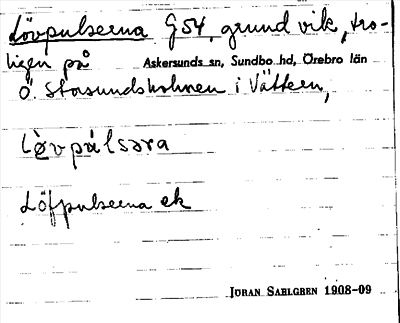 Lövpulserna G54, grund vik, tro-
ligen på Askersunds sn, Sundbo hd, Örebro län
Ö. Storsundsholmen i Vättern,
Lòvpålsəra
Löfpulserna ek
JÖRAN SAHLGREN 1908-09